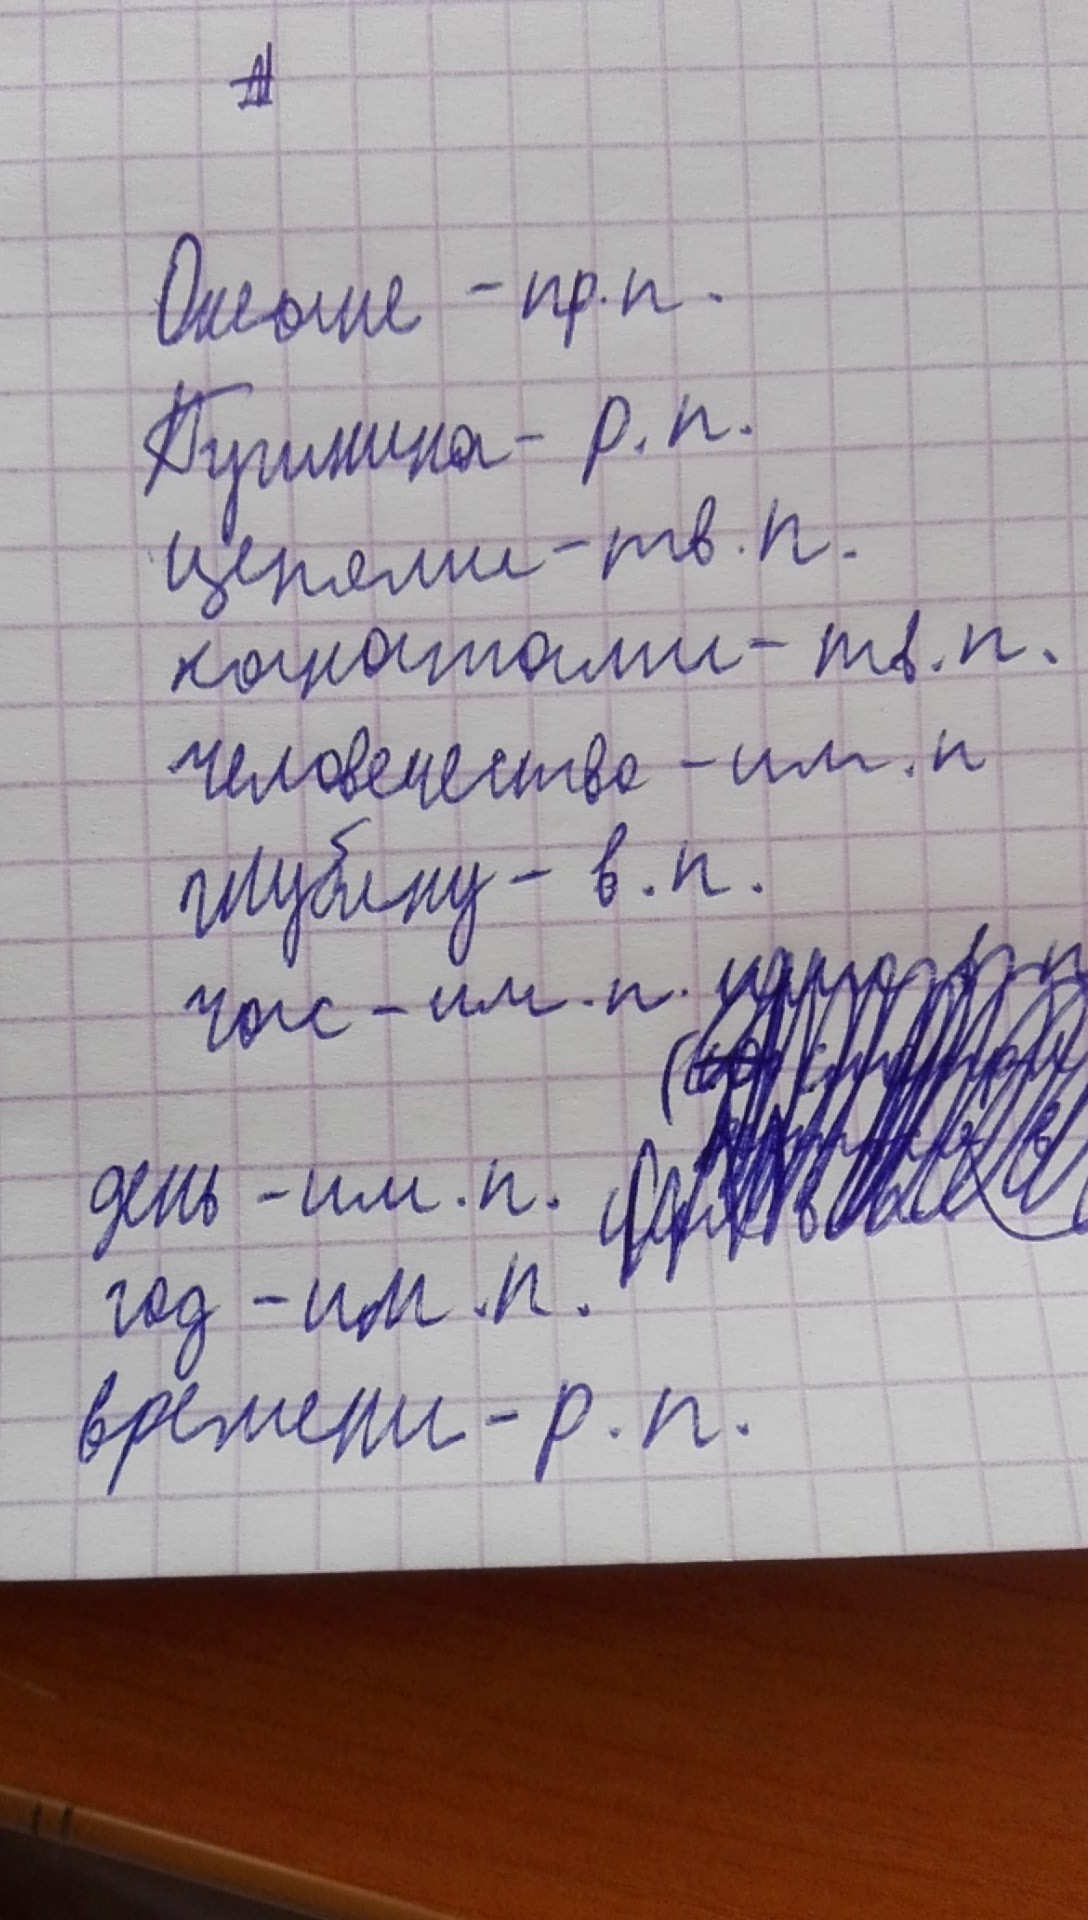 Океане - пр.п.
Пушкина - р.п.
цепями - тв.п.
канатами - тв.п.
человечество - им.п
глубину - в.п.
час - им.п.
день - им.п.
год - им.п.
времени - р.п.